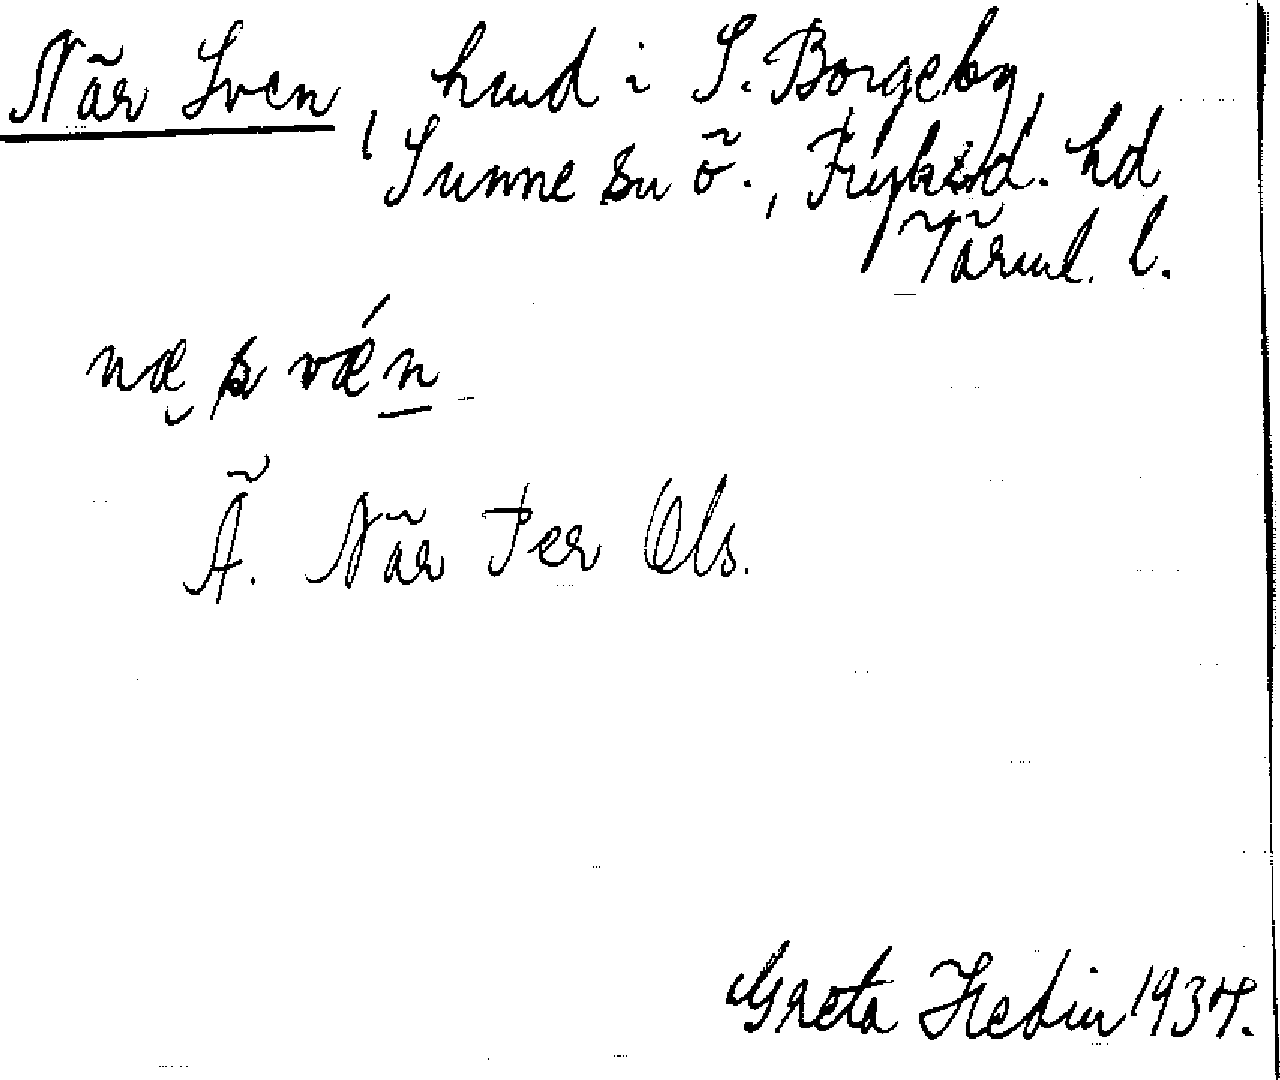 När Sven, hmd i S. Borgeby,
Sunne sn ö., Fryksd. hd
Värml. l.
næ s vǽn
Ä. När Per Ols.
Greta Hedin 1934.